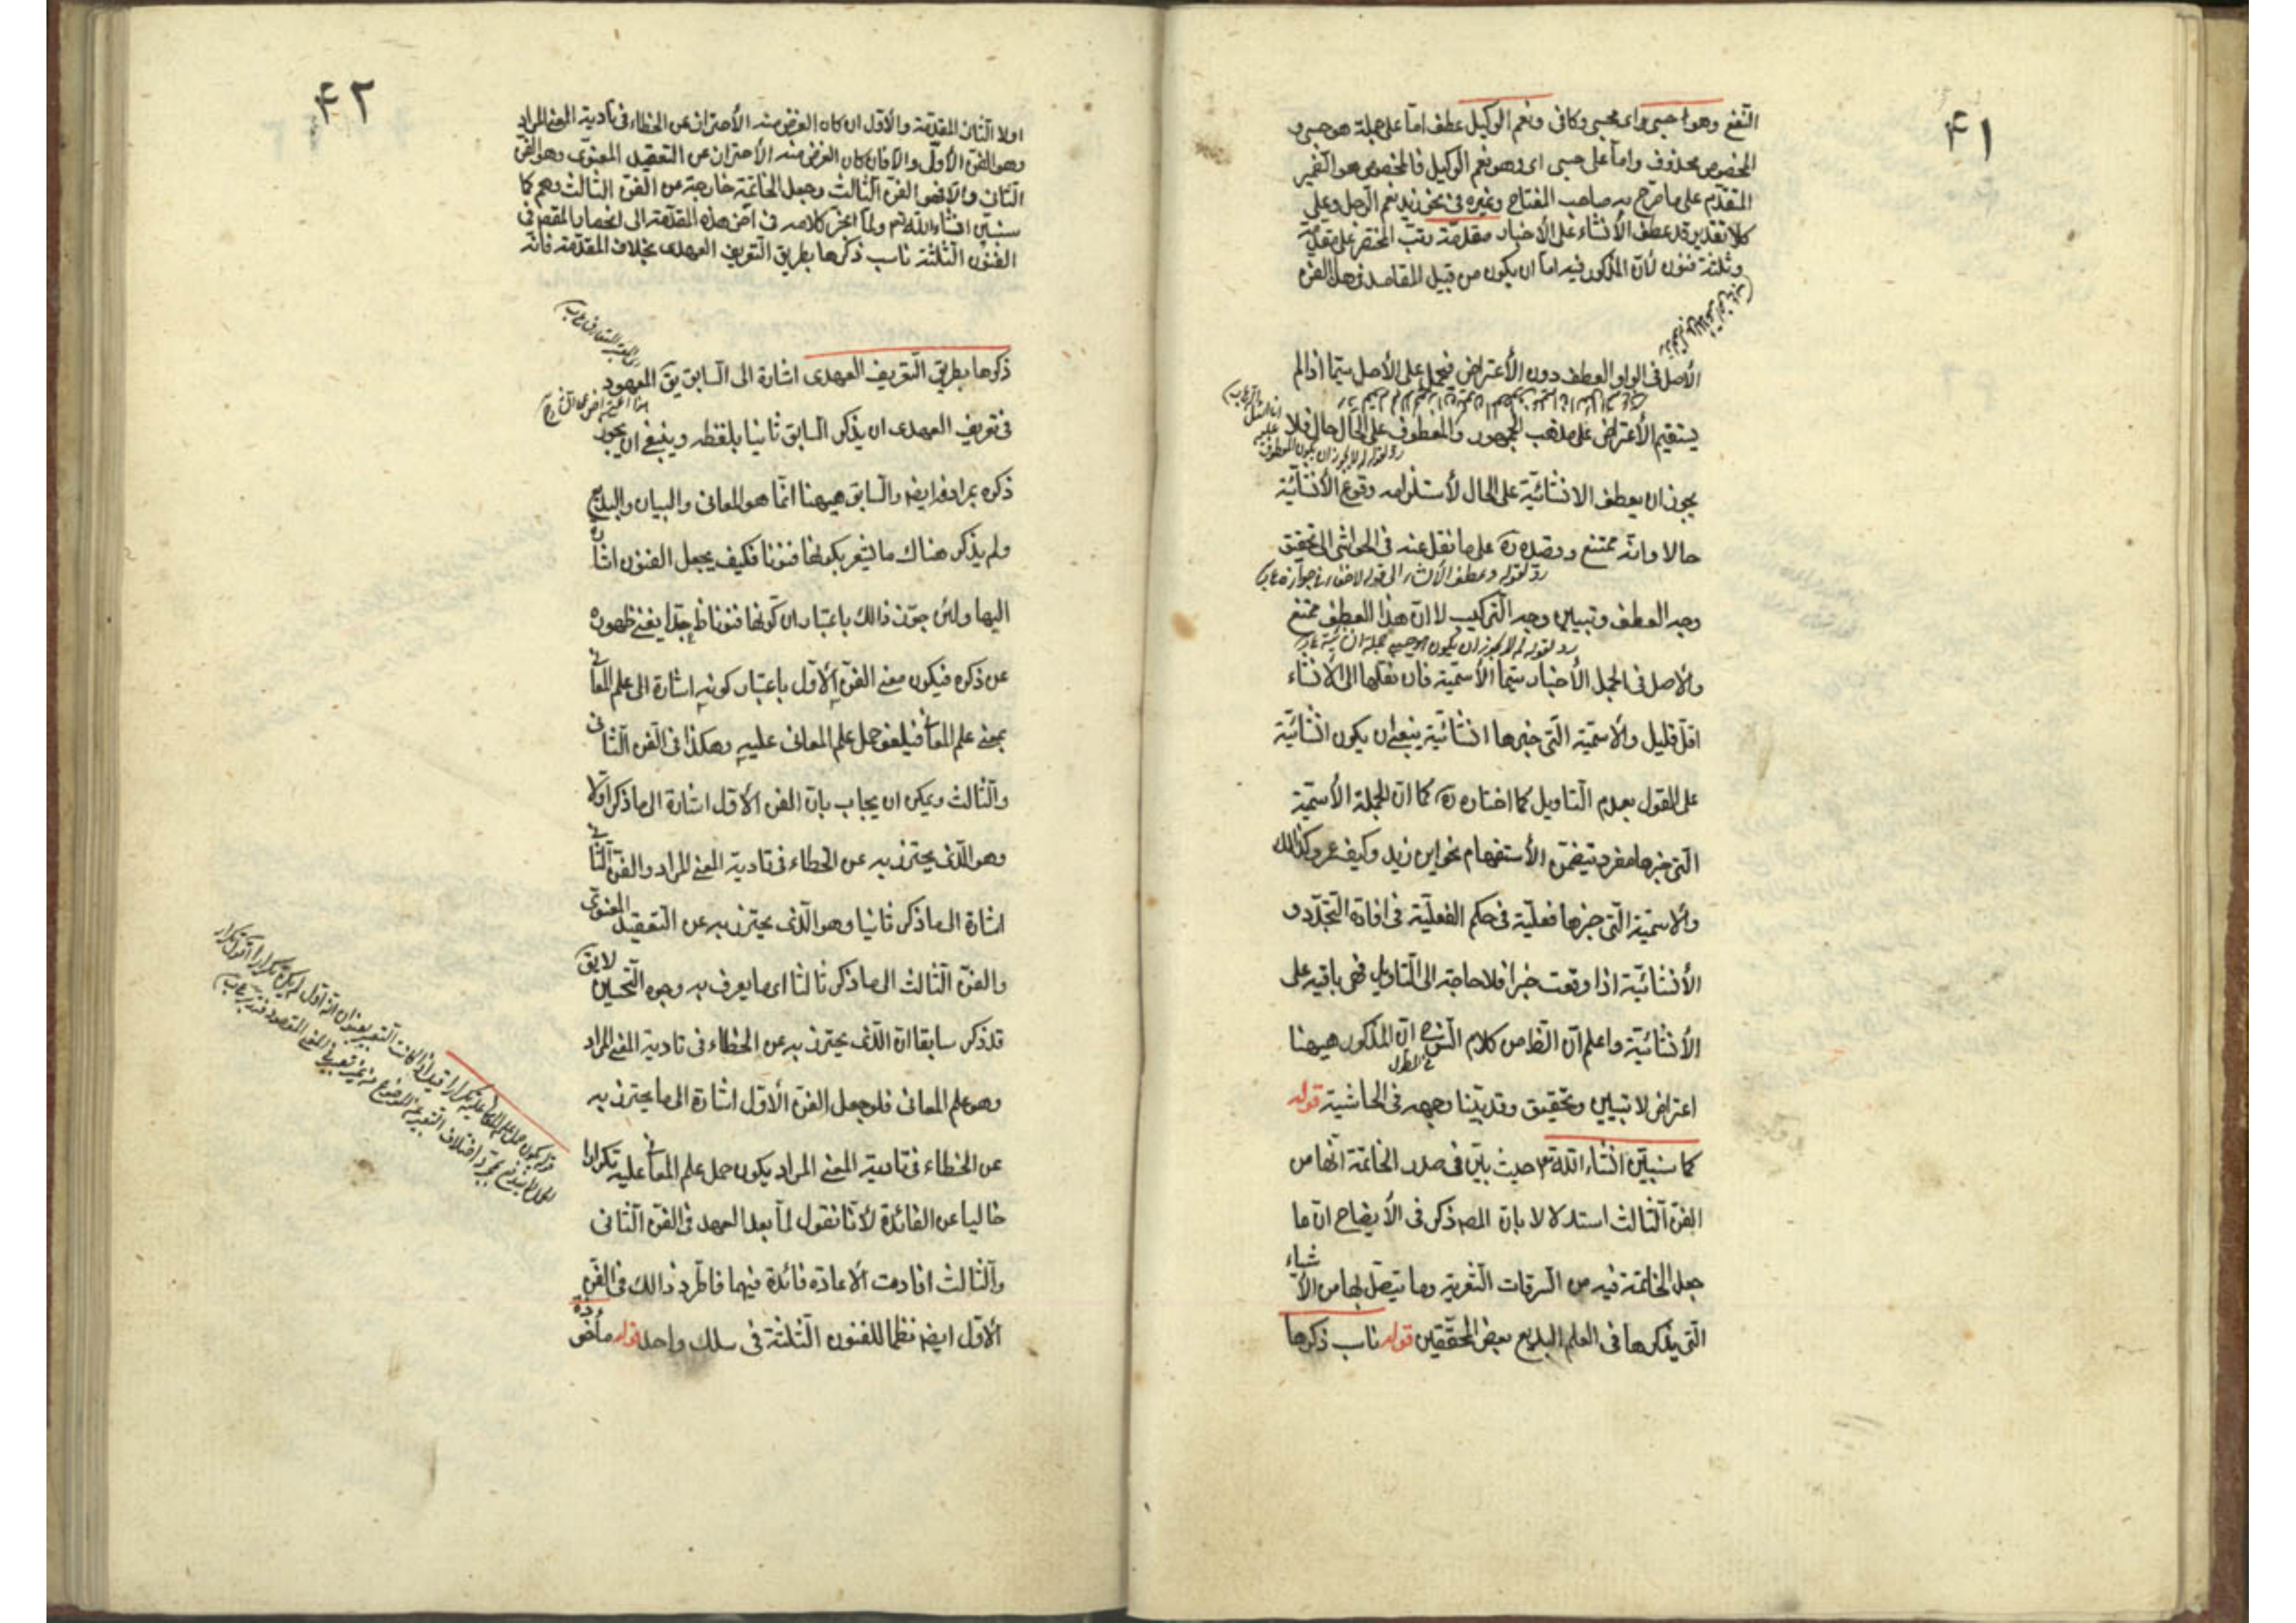 ٤١
النفع وهو احسبى واى محسبى وكافى ونعم الوكيل عطف اما على جملة هو حسبى و
المخصوص محذوف واما على حسبى اى وهو نعم الوكيل فالمخصوص هو الضمير
المتقدم على ما صرح به صاحب المفتاح وغيره فى نحو زيد نعم الرجل وعلى
كلا تقدير قد عطف الأنشاء على الأخبار مقدمة رتب المختصر على مقدمة
وثلثة فنون لأن المذكور فيه اما ان يكون من قبيل المقاصد فى هذا الفن
الأصل فى الواو العطف دون الأعتراض فيحمل على الأصل سيما اذا لم
يستقيم الأعتراض على مذهب الجمهور والمعطوف على الحال حال فلا
رد لقوله لم لا يجوز ان يكون المعطوف
يجوز ان يعطف الانشائية على الحال لأستلزامه وقوع الأنشائية
حالا وانه ممتنع وقصده ره على ما نقل عنه فى الحواشى الى تحقيق
رد لقوله وعطف الأنشاء الى قوله لاخفاء فى جوازه
وجه العطف وتبيين وجه التركيب لا ان هذا العطف ممتنع
رد لقوله لم لا يجوز ان يكون هو حسبى جملة انشائية
والاصل فى الجمل الأخبار سيما الأسمية فان نقلها الى الأنشاء
اقل قليل والاسمية التى خبرها انشائية ينبغى ان يكون انشائية
على القول بعدم التاويل كما اختاره ره كما ان الجملة الأسمية
التى خبرها مفرد يتضمن الأستفهام نحو اين زيد وكيف عمرو كذلك
والاسمية التى خبرها فعلية فى حكم الفعلية فى افادة التجدد و
الأنشائية اذا وقعت خبرا فلا حاجة الى التاويل فهى باقيه على
الأنشائية واعلم ان الظ من كلام الش ره فى المطول ان المذكور هيهنا
اعتراض لا تبيين وتحقيق وقد بينا وجهه فى الحاشية قوله
كما سنبين انشاء الله تع حيث بين فى صدر الخاتمة انها من
الفن الثالث استدلالا بان المص ذكر فى الأيضاح ان ما
جعل الخاتمة فيه من السرقات الشعرية وما يتصل بها من الأشياء
التى يذكرها فى العلم البديع بعض المحققين قوله ناسب ذكرها
٤٢
اولا الثانى المقدمة والأول ان كان الغرض منه الأحتراز عن الخطاء فى تادية المعنى المراد
وهو الفن الأول والا فان كان الغرض منه الأحتراز عن التعقيد المعنوى وهو الفن
الثانى والا فهو الفن الثالث وجعل الخاتمة خارجة من الفن الثالث وهم كما
سنبين انشاء الله تع ولما انجر كلامه فى اخر هذه المقدمة الى انحصار المقصد فى
الفنون الثلثة ناسب ذكرها بطريق التعريف العهدى بخلاف المقدمة فانه
ذكرها بطريق التعريف العهدى اشارة الى السابق يق المعهود
فى تعريف العهدى ان يذكر السابق ثانيا بلفظه وينبغى ان يجوز
ذكره بمرادفه ايضه والسابق هيهنا انما هو المعانى والبيان والبديع
ولم يذكر هناك ما يشعر بكونها فنونا فكيف يجعل الفنون اشارة
اليها ولئن جوز ذالك باعتبار ان كونها فنونا ظ جدا يغنى ظهوره
عن ذكره فيكون معنى الفن الأول باعتبار كونه اشارة الى علم المعانى
بمعنى علم المعانى فيلغو حمل علم المعانى عليه وهكذا فى الفن الثانى
والثالث ويمكن ان يجاب بان الفن الأول اشارة الى ما ذكر اولا
وهو الذى يحترز به عن الخطاء فى تادية المعنى المراد والفن الثانى
اشارة الى ما ذكر ثانيا وهو الذى يحترز به عن التعقيد المعنوى
والفن الثالث الى ما ذكر ثالثا اى ما يعرف به وجوه التحسين لا يق
قد ذكر سابقا ان الذى يحترز به عن الخطاء فى تادية المعنى المراد
وهو علم المعانى فلو جعل الفن الأول اشارة الى ما يحترز به
عن الخطاء فى تادية المعنى المراد يكون حمل علم المعانى عليه تكرارا
خاليا عن الفائدة لأنا نقول لما بعد العهد فى الفن الثانى
والثالث افادت الأعادة فائدة فيهما فاطرد ذالك فى الفن
الأول ايضه نظما للفنون الثلثة فى سلك واحد قوله مأخوذة